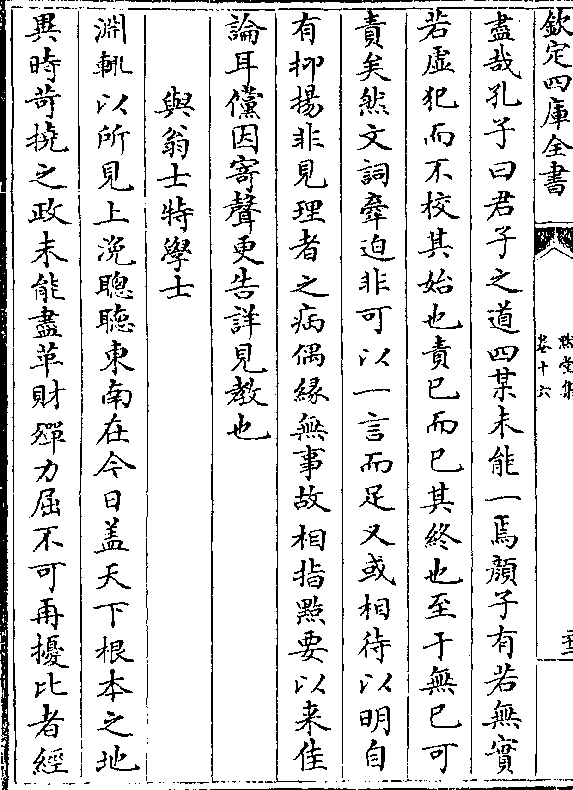 欽定四庫全書
默堂集
卷十六
盡哉孔子曰君子之道四某未能一焉顔子有若無實
若虛犯而不校其始也責已而已其終也至于無已可
責矣然文詞牽迫非可以一言而足又或相待以明自
有抑揚非見理者之病偶緣無事故相指點要以来佳
論耳儻因寄聲更告詳見教也
與翁士特學士
淵輒以所見上浼聰聽東南在今日盖天下根本之地
異時苛撓之政未能盡革財殫力屈不可再擾比者經